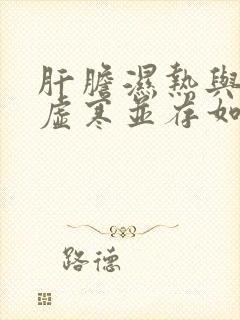 肝膽濕熱與
虛寒並存如
路德